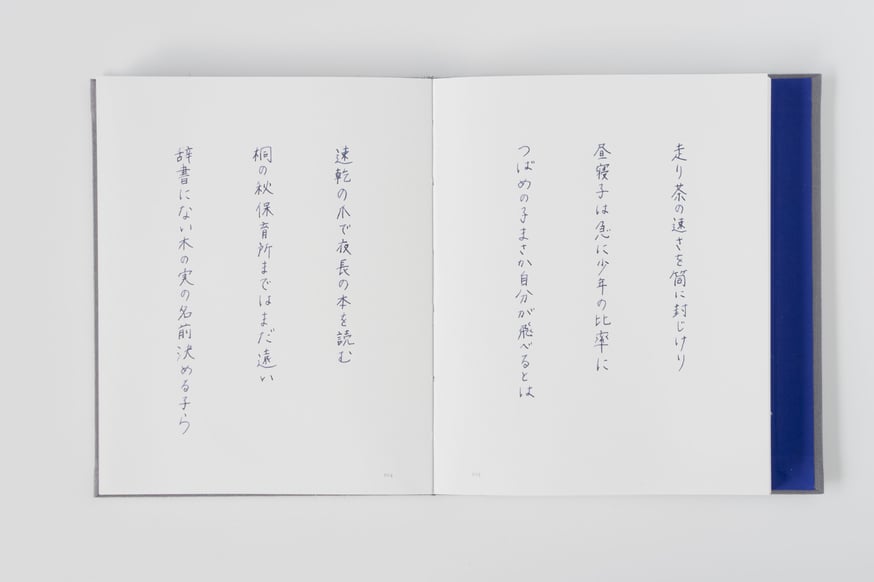 走り茶の速さを筒に封じけり
昼寝子は急に少年の比率に
つばめの子まさか自分が飛べるとは
速乾の爪で夜長の本を読む
桐の秋保育所まではまだ遠い
辞書にない木の実の名前決める子ら